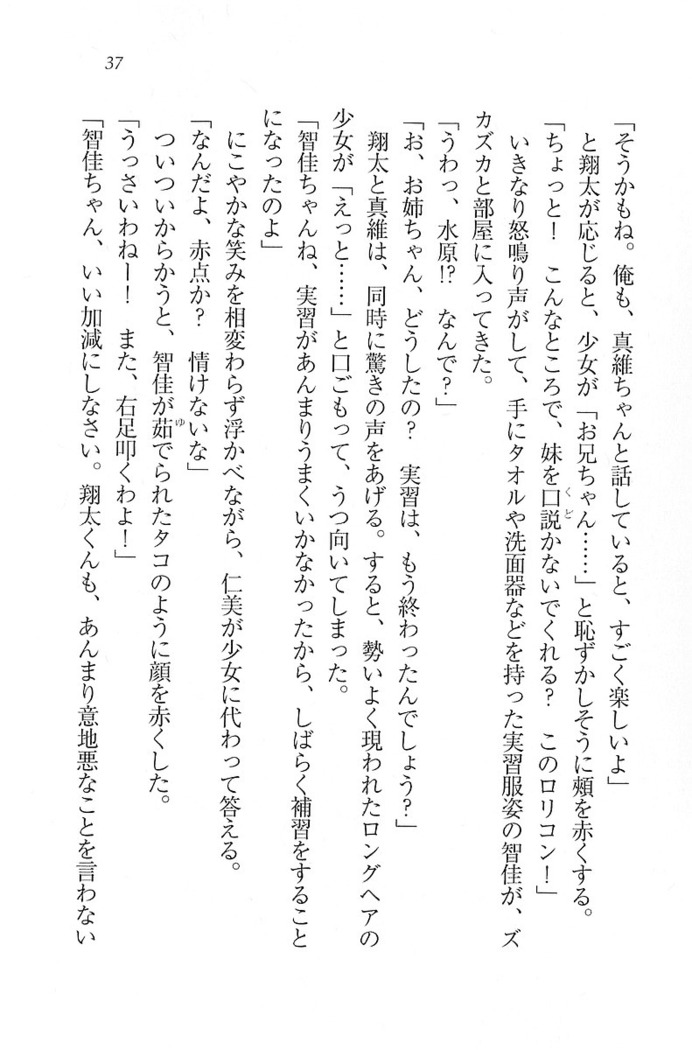 37
「そうかもね。俺も、真維ちゃんと話していると、すごく楽しいよ」
と翔太が応じると、少女が「お兄ちゃん……」と恥ずかしそうに頰を赤くする。
「ちょっと！　こんなところで、妹を口説かないでくれる？　このロリコン！」
くど
いきなり怒鳴り声がして、手にタオルや洗面器などを持った実習服姿の智佳が、ズ
カズカと部屋に入ってきた。
「うわっ、水原!?　なんで？」
「お、お姉ちゃん、どうしたの？　実習は、もう終わったんでしょう？」
翔太と真維は、同時に驚きの声をあげる。すると、勢いよく現われたロングヘアの
少女が「えっと……」と口ごもって、うつ向いてしまった。
「智佳ちゃんね、実習があんまりうまくいかなかったから、しばらく補習をすること
になったのよ」
にこやかな笑みを相変わらず浮かべながら、仁美が少女に代わって答える。
「なんだよ、赤点か？　情けないな」
ついついからかうと、智佳が茹でられたタコのように顔を赤くした。
ゆ
「うっさいわねー！　また、右足叩くわよ！」
「智佳ちゃん、いい加減にしなさい。翔太くんも、あんまり意地悪なことを言わない